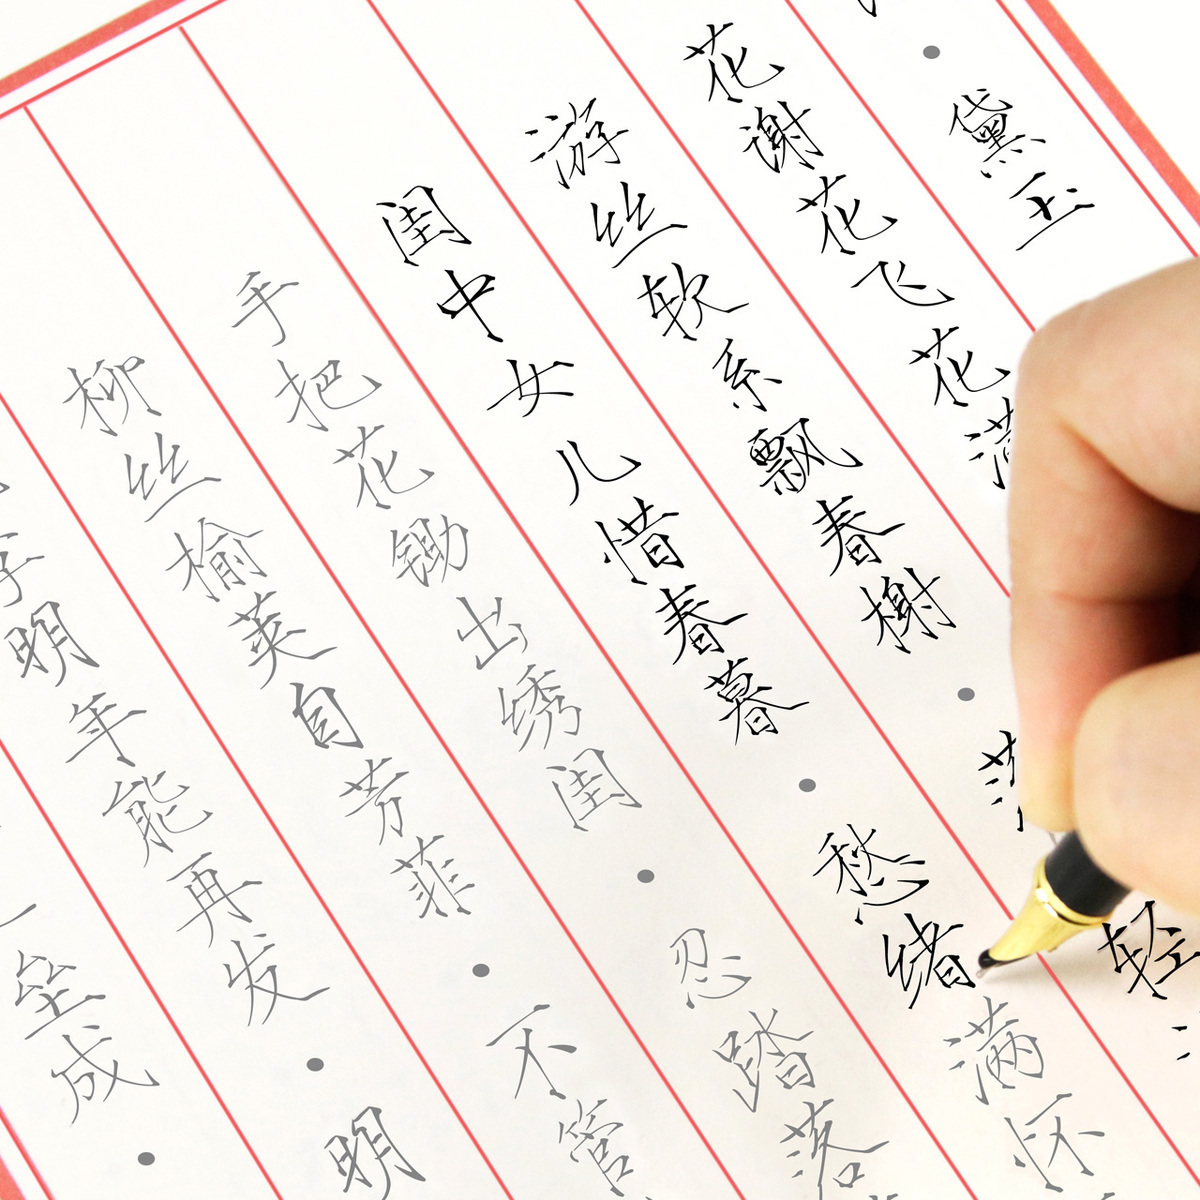 ・黛玉
花谢花飞花满
游丝软系飘春榭・落轻
闺中女儿惜春暮・愁绪满怀
手把花锄出绣闺・忍踏落
柳丝榆荚自芳菲・不管
李明年能再发・明
垒成・